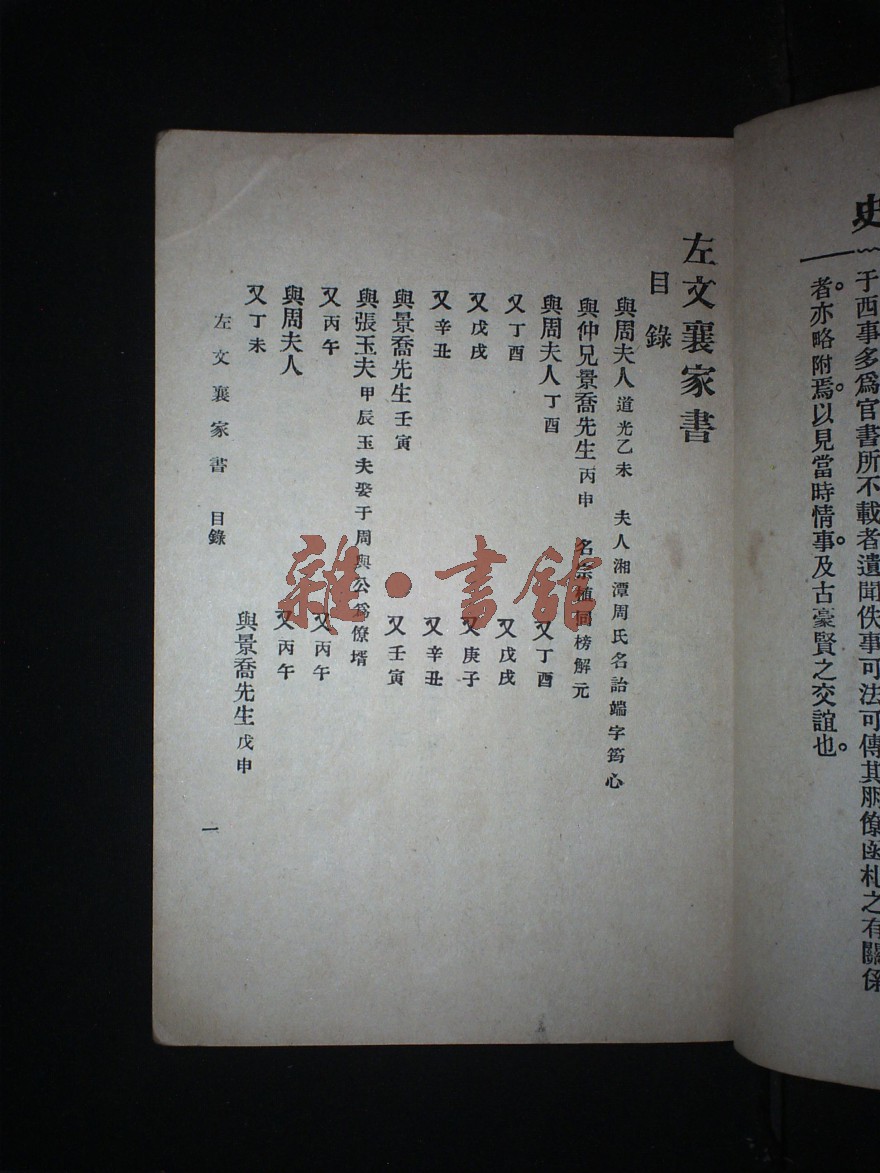 史
于西事多爲官書所不載者遺聞佚事可法可傳其朋僚函札之有關係
者。亦略附焉。以見當時情事。及古豪賢之交誼也。
左文襄家書
目錄
與周夫人 道光乙未 夫人湘潭周氏名詒端字筠心
與仲兄景喬先生 丙申 名宗植同榜解元
與周夫人 丁酉
又 丁酉
又 丁酉
又 戊戌
又 戊戌
又 庚子
又 辛丑
又 辛丑
與景喬先生 壬寅
又 壬寅
與張玉夫 甲辰玉夫娶于周與公爲僚壻
又 丙午
又 丙午
與周夫人
又 丙午
又 丁未
與景喬先生 戊申
左文襄家書 目錄
一
雜·書館